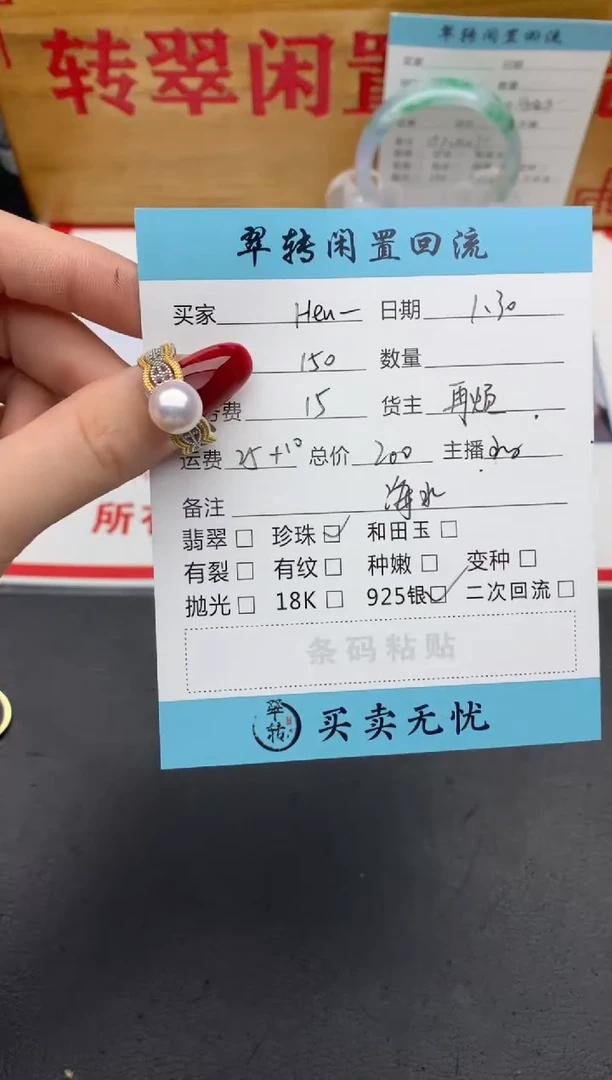 转翠闲置
翠转闲置回流
翠转闲置回流
买家 Hen一 日期 1.30
150 数量
务费 15 货主 再烦
运费 25+10 总价 200 主播
备注 海水
翡翠 珍珠 和田玉
有裂 有纹 种嫩 变种
抛光 18K 925银 二次回流
条码粘贴
翠转 买卖无忧
所有